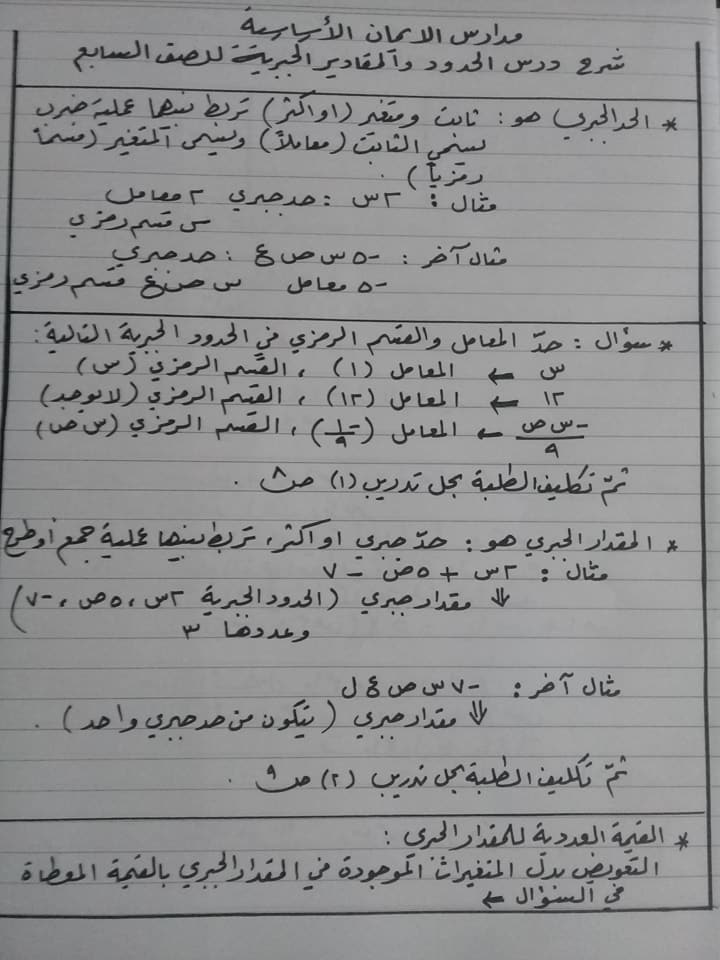 مدارس الايمان الأساسية
شرح درس الحدود والمقادير الجبرية للصف السابع
* الحد الجبري هو: ثابت ومتغير (او اكثر) تربط بينها عملية ضرب
يسمى الثابت (معاملاً) ويسمى المتغير (قسماً
رمزياً).
مثال: ٢س : حد جبري ٢ معامل
س قسم رمزي
مثال آخر: -٥ س ص ع : حد جبري
-٥ معامل س ص ع قسم رمزي
* سؤال: حدّ المعامل والقسم الرمزي في الحدود الجبرية التالية:
س ← المعامل (١) ، القسم الرمزي (س)
١٢ ← المعامل (١٢) ، القسم الرمزي (لا يوجد)
-س ص/٩ ← المعامل (-١/٩) ، القسم الرمزي (س ص)
ثمّ تكليف الطلبة بحل تدريب (١) ص٨ .
* المقدار الجبري هو: حدّ جبري او اكثر، تربط بينها عملية جمع أو طرح
مثال: ٢س + ٥ص - ٧
⇓ مقدار جبري (الحدود الجبرية ٢س ، ٥ص ، -٧)
وعددها ٣
مثال آخر: -٧ س ص ع ل
⇓ مقدار جبري (يتكون من حد جبري واحد) .
ثمّ تكليف الطلبة بحل تدريب (٢) ص٩ .
* القيمة العددية للمقدار الجبري :
التعويض بدل المتغيرات الموجودة في المقدار الجبري بالقيمة المعطاة
في السؤال ←